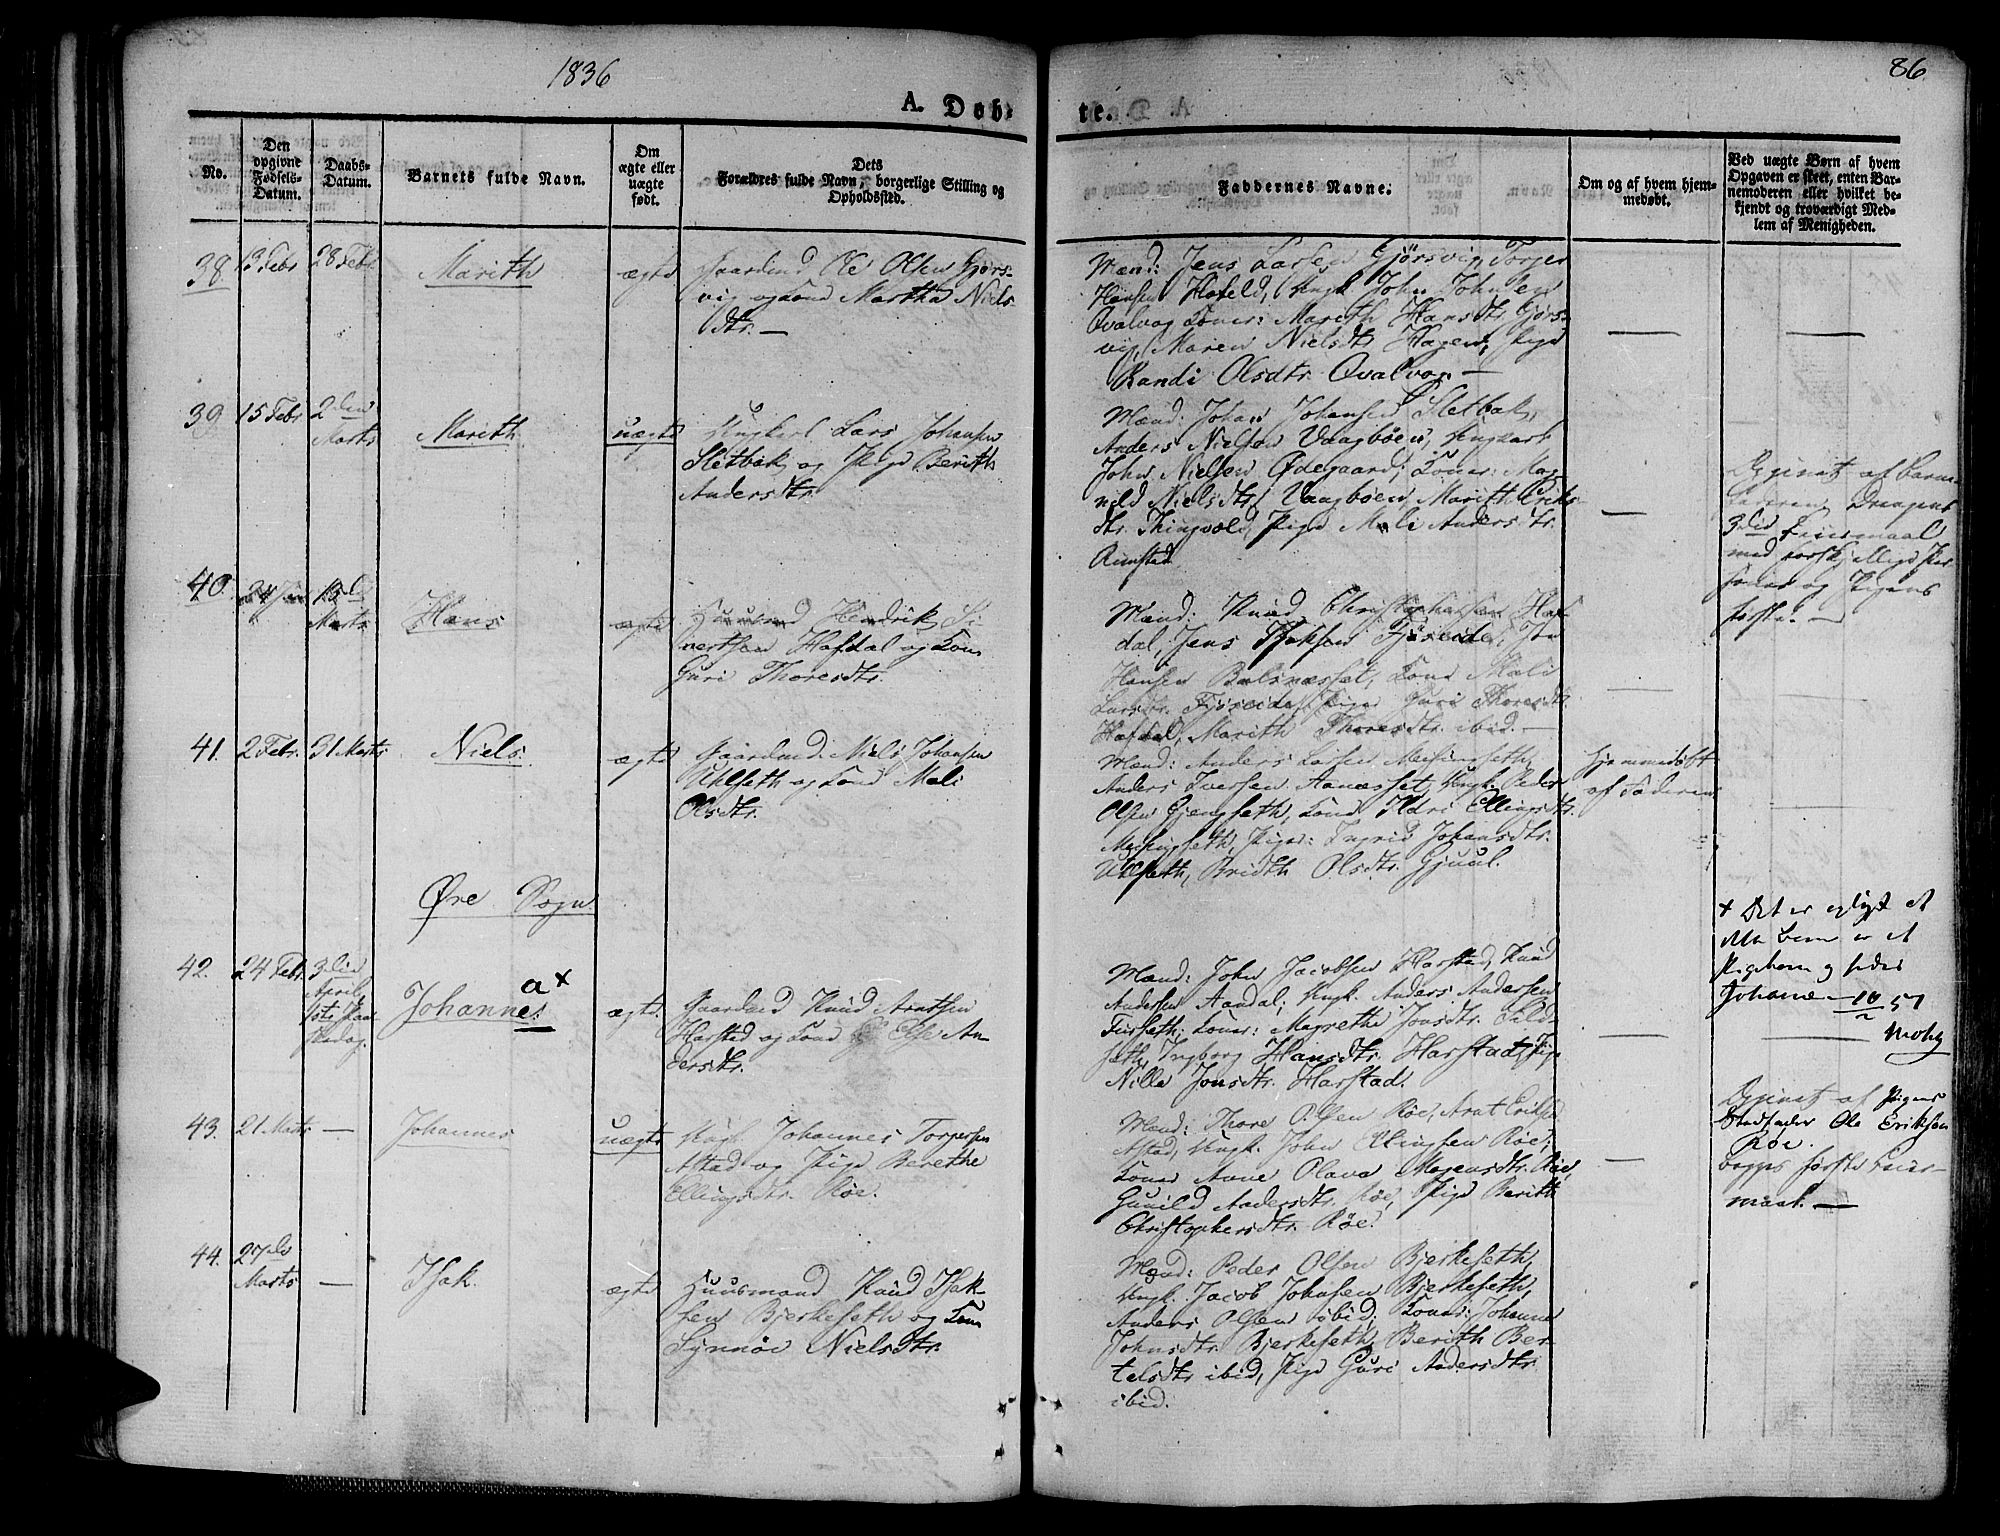 1836
86
A. Døb-
te.
No.
Den opgivne Fødsels-Datum.
Daabs-Datum.
Barnets fulde Navn.
Om ægte eller uægte født.
Dets Forældres fulde Navn, borgerlige Stilling og Opholdssted.
Faddernes Navne.
Om og af hvem hjem-
medøbt.
Ved uægte Børn af hvem
Opgaven er skeet, enten Bar-
nemoderen eller hvilket be-
kjendt og troværdigt Med-
lem af Menigheden.
38
13 Febr
28 Febr
Marith
ægte
Gaardmd Ole Olsen Gjørs-
vig og Kone Martha Niels
dtr. —
Mænd: Jens Larsen Gjørsvig, Torger
Hansen Hafeld, Ungk John Johnsen
Qvalvog Koner: Marith Hansdtr. Gjørs-
vig, Maren Nielsdtr Hagen, Pige
Randi Olsdtr. Qvalvog. —
39
15 Febr
2den
Marts
Marith
uægte
Ungkarl Lars Johansen
Sletbak og Pige Berith
Andersdtr.
Mænd: Johan Johansen Sletbak,
Anders Nielsen Vaagbøen, Ungkarl
John Nielsen Ødegaard; Koner: Mag
nild Nielsdtr Vaagbøen, Marith Eriks
dtr. Thingvold, Pige Mali Andersdtr.
Rimstad
Opgivet af Barne-
faderen, Drengens
3die Leiermaal
med forskjellige Per
soner og Pigens
første. —
40.
24 Jan
13de
Marts
Hans
ægte
Huusmd Hendrik Si
vertsen Hafdal og Kone
Guri Thoresdtr.
Mænd: Knud Christophersen Haf
dal, Jens Isaksen Fjøseide, Jon
Hansen Bolsnæsset, Kone Mali
Larsdtr. Fjøseide, Piger Guri Thoresdtr
Hafdal, Marith Thoresdtr. ibid. —
41.
2 Febr.
31 Marts
Niels.
ægte
Gaardmd. Niels Johansen
Uhlseth og Kone Mali
Olsdtr.
Mænd: Anders Larsen Meisingseth,
Anders Iversen Aanæsset, Ungk. Peder
Olsen Gjengseth, Kone Ildri Ellingsdtr.
Meisingseth, Piger: Ingrid Johansdtr.
Uhlseth, Bridth Olsdtr. Gjuul.
Hjemmedøbt
af Faderen
Øre Sogn
42.
24 Febr.
3die
April
1ste Paa
skedag.
Johannes a×
ægte
Gaardmd Knud Arntsen
Harstad og Kone Else An
dersdtr.
Mænd: John Jacobsen Harstad, Knud
Andersen Aandal; Ungk. Anders Andersen
Furseth; Koner: Magrethe Jonsdtr. Sild
seth, Ingborg Hansdtr. Harstad, Pige
Nille Jonsdtr. Harstad.
× Det er oplyst at
dette Barn er et
Pigebarn og heder
Johanne — 10/2 57
Moky
43.
21 Marts
—
Johannes
uægte
Ungk. Johannes Torgersen
Astad og Pige Berethe
Ellingsdtr. Røe.
Mænd: Thore Olsen Røe, Arnt Eriksen
Astad, Ungk. John Ellingsen Røe;
Koner Anne Olava Mogensdtr. Røe,
Gunild Andersdtr. Røe, Pige Berith
Christophersdtr. Røe.
Opgivet af Pigens
Stedfader Ole Eriksen
Røe.
begges første Leier-
maal. —
44.
27de
Marts
—
Isak.
ægte
Huusmand Knud Isak-
sen Bjerkeseth og Kone
Synnøe Nielsdtr.
Mænd: Peder Olsen Bjerkeseth,
Ungk. Jacob Johnsen Bjerkeseth,
Anders Olsen ibid; Koner: Johanne
Johnsdtr. Bjerkeseth, Berith Ber-
telsdtr ibid, Pige Guri Andersdtr.
ibid.